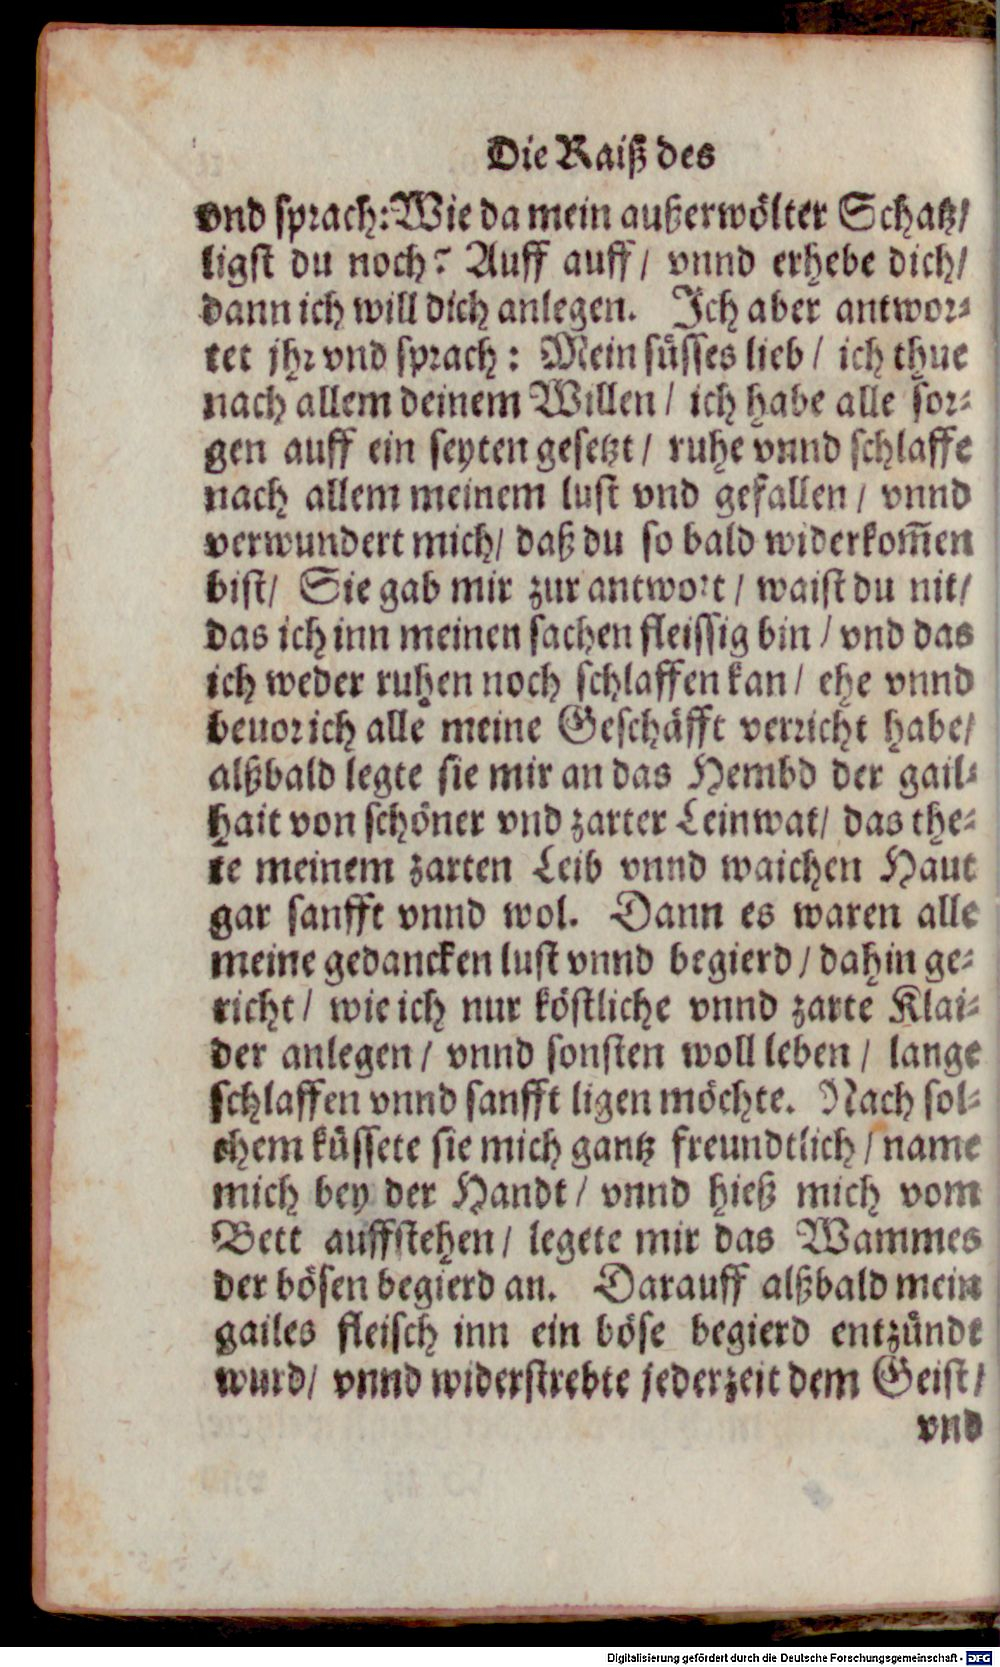 Die Raiß des
vnd sprach: Wie da mein außerwölter Schatz/
ligst du noch? Auff auff/ vnnd erhebe dich/
dann ich will dich anlegen. Ich aber antwor-
tet jhr vnd sprach: Mein süsses lieb/ ich thue
nach allem deinem Willen/ ich habe alle sor-
gen auff ein seyten gesetzt/ ruhe vnnd schlaffe
nach allem meinem lust vnd gefallen/ vnnd
verwundert mich/ daß du so bald widerkom̃en
bist/ Sie gab mir zur antwort/ waist du nit/
das ich inn meinen sachen fleissig bin/ vnd das
ich weder ruhen noch schlaffen kan/ ehe vnnd
beuor ich alle meine Geschäfft verricht habe/
alßbald legte sie mir an das Hembd der gail-
hait von schöner vnd zarter Leinwat/ das the-
te meinem zarten Leib vnnd waichen Haut
gar sanfft vnnd wol. Dann es waren alle
meine gedancken lust vnnd begierd/ dahin ge-
richt/ wie ich nur köstliche vnnd zarte Klai-
der anlegen/ vnnd sonsten woll leben/ lange
schlaffen vnnd sanfft ligen möchte. Nach sol-
chem küssete sie mich gantz freundtlich/ name
mich bey der Handt/ vnnd hieß mich vom
Bett auffstehen/ legete mir das Wammes
der bösen begierd an. Darauff alßbald mein
gailes fleisch inn ein böse begierd entzündt
wurd/ vnnd widerstrebte jederzeit dem Geist/
vnd
Digitalisierung gefördert durch die Deutsche Forschungsgemeinschaft - DFG